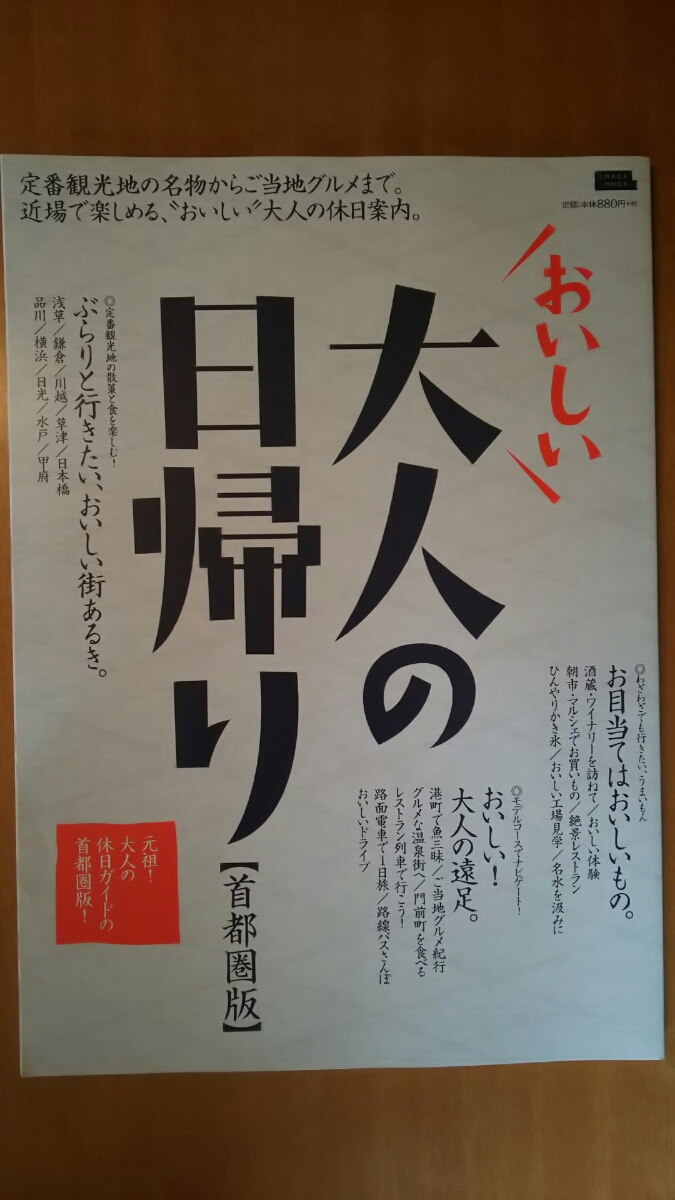 定番観光地の名物からご当地グルメまで。
近場で楽しめる、〝おいしい〟大人の休日案内。
定価:本体880円+税
おいしい
大人の
日帰り
【首都圏版】
◎わざわざでも行きたい、うまいもん
お目当てはおいしいもの。
酒蔵・ワイナリーを訪ねて/おいしい体験
朝市・マルシェでお買いもの/絶景レストラン
ひんやりかき氷/おいしい工場見学/名水を汲みに
◎モデルコースでナビゲート!
おいしい!
大人の遠足。
港町で魚三昧/ご当地グルメ紀行
グルメな温泉街へ/門前町を食べる
レストラン列車で行こう!
路面電車で1日旅/路線バスさんぽ
おいしいドライブ
◎定番観光地の散策と食を楽しむ!
ぶらりと行きたい、おいしい街あるき。
浅草/鎌倉/川越/草津/日本橋
品川/横浜/日光/水戸/甲府
元祖!
大人の
休日ガイドの
首都圏版!